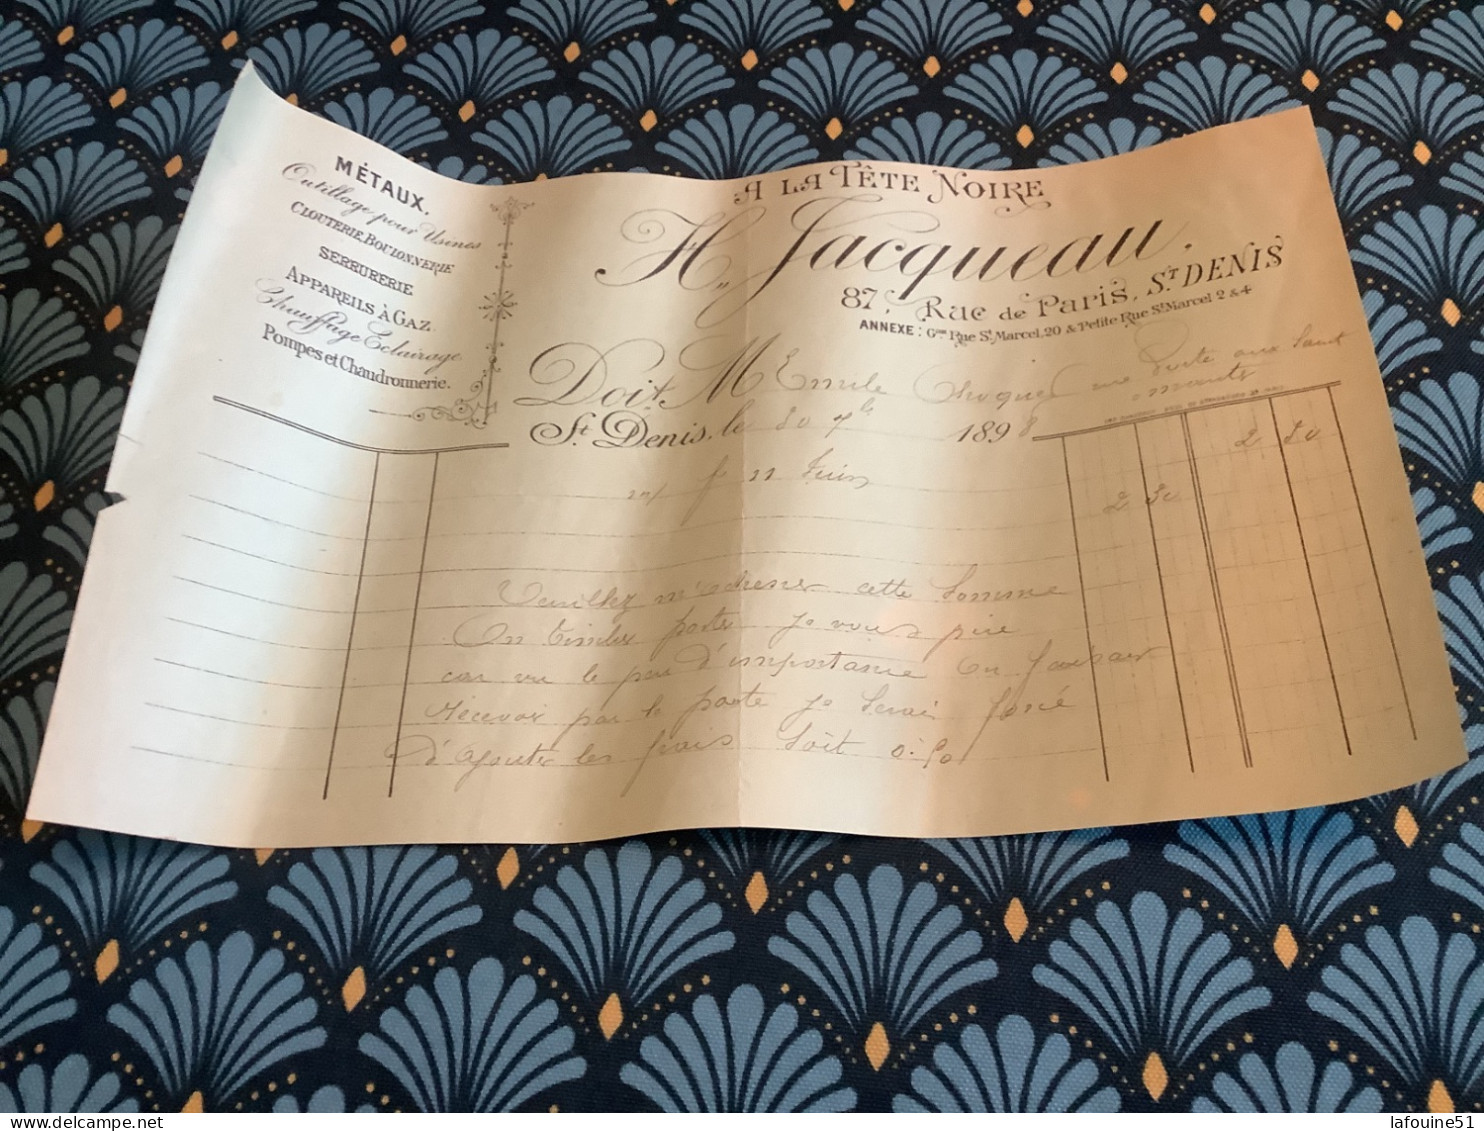 MÉTAUX.
Outillage pour Usines
CLOUTERIE, BOULONNERIE
SERRURERIE
APPAREILS À GAZ
Chauffage Eclairage
Pompes et Chaudronnerie.
A LA TÊTE NOIRE
H. Jacqueau.
87, Rue de Paris, ST DENIS
ANNEXE: Gde Rue St Marcel, 20 & Petite Rue St Marcel 2 & 4
Doit M Emile Choque rue Porte aux Saints
Mantes
St Denis, le 30 7bre 1898
2 50
11 Juin
2 50
Veuillez m'adresser cette Somme
En timbres poste je vous prie
car vu le peu d'importance En faisant
recevoir par la poste je serai forcé
d'ajouter les frais Soit 0.50
lafouine51